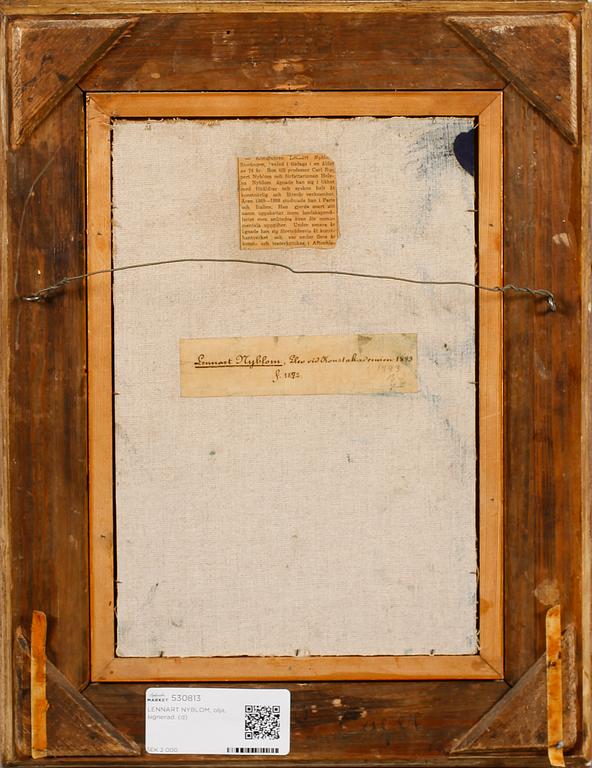 Konstnären Lennart Nyblom
i en ålder
av 74 år. Son till professor Carl Ru-
pert Nyblom och författarinnan Hele-
na Nyblom ägnade han sig i likhet
med föräldrar och syskon helt åt
konstnärlig och litterär verksamhet.
Åren 1898—1900 studerade han i Paris
och Italien. Han gjorde snart sitt
namn uppskattat inom landskapsmå-
leriet men anlitades även för monu-
mentala uppgifter. Under senare år
ägnade han sig företrädesvis åt konst-
hantverket och var under flera år
konst- och teaterkritiker i Aftonbla-
Lennart Nyblom, Elev vid Konstakademien 1893
f. 1872.
1893
MARKET 530813
LENNART NYBLOM, olja,
signerad. (d)
SEK 2 000